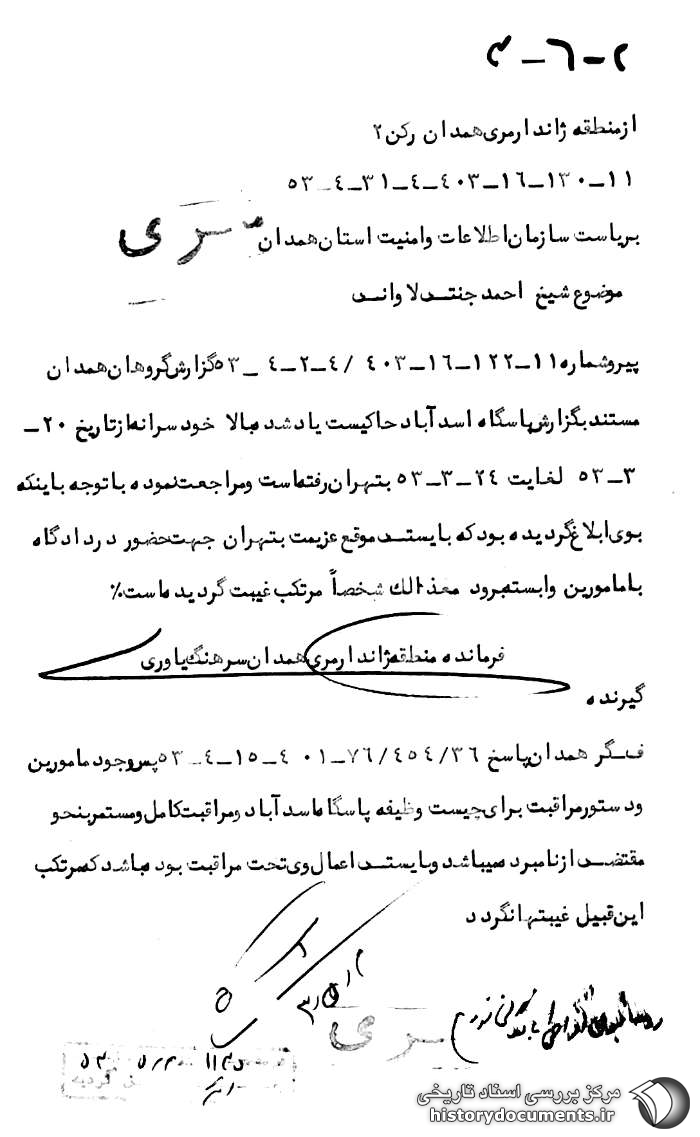 ۲-۶-۳
ازمنطقه ژاندارمری همدان رکن۲
۱۱-۱۳۰-۱۶-۴۰۳-۴-۳۱-۴-۵۳
بریاست سازمان اطلاعات وامنیت استان همدان سری
موضوع شیخ احمد جنتی لادانی
پیروشماره ۱۱-۱۲۲-۱۶-۴۰۳ /۴-۲-۴-۵۳ گزارش گروهان همدان
مستند بگزارش پاسگاه اسدآباد حاکیست یاد شده بالا خود سرانه ازتاریخ ۲۰-
۳-۵۳ لغایت ۲۴-۳-۵۳ بتهران رفته است ومراجعت نموده با توجه باینکه
بوی ابلاغ گردیده بود که بایستی موقع عزیمت بتهران جهت حضور در دادگاه
با مامورین وابسته برود معذالک شخصاً مرتکب غیبت گردیده است٪
فرمانده منطقه ژاندارمری همدان سرهنگ یاوری
گیرنده
ف گر همدان پاسخ ۳۶/۴۵۴/۷۶-۰۱ ۴-۱۵-۴-۵۳ پس وجود مامورین
ودستور مراقبت برای چیست وظیفه پاسگاه اسدآباد ومراقبت کامل ومستمر بنحو
مقتضی از نامبرده میباشد وبایستی اعمال وی تحت مراقبت بوده باشد که مرتکب
این قبیل غیبتها نگردد
سری
۱۱۳۵
۵۳
مرکز بررسی اسناد تاریخی
historydocuments.ir